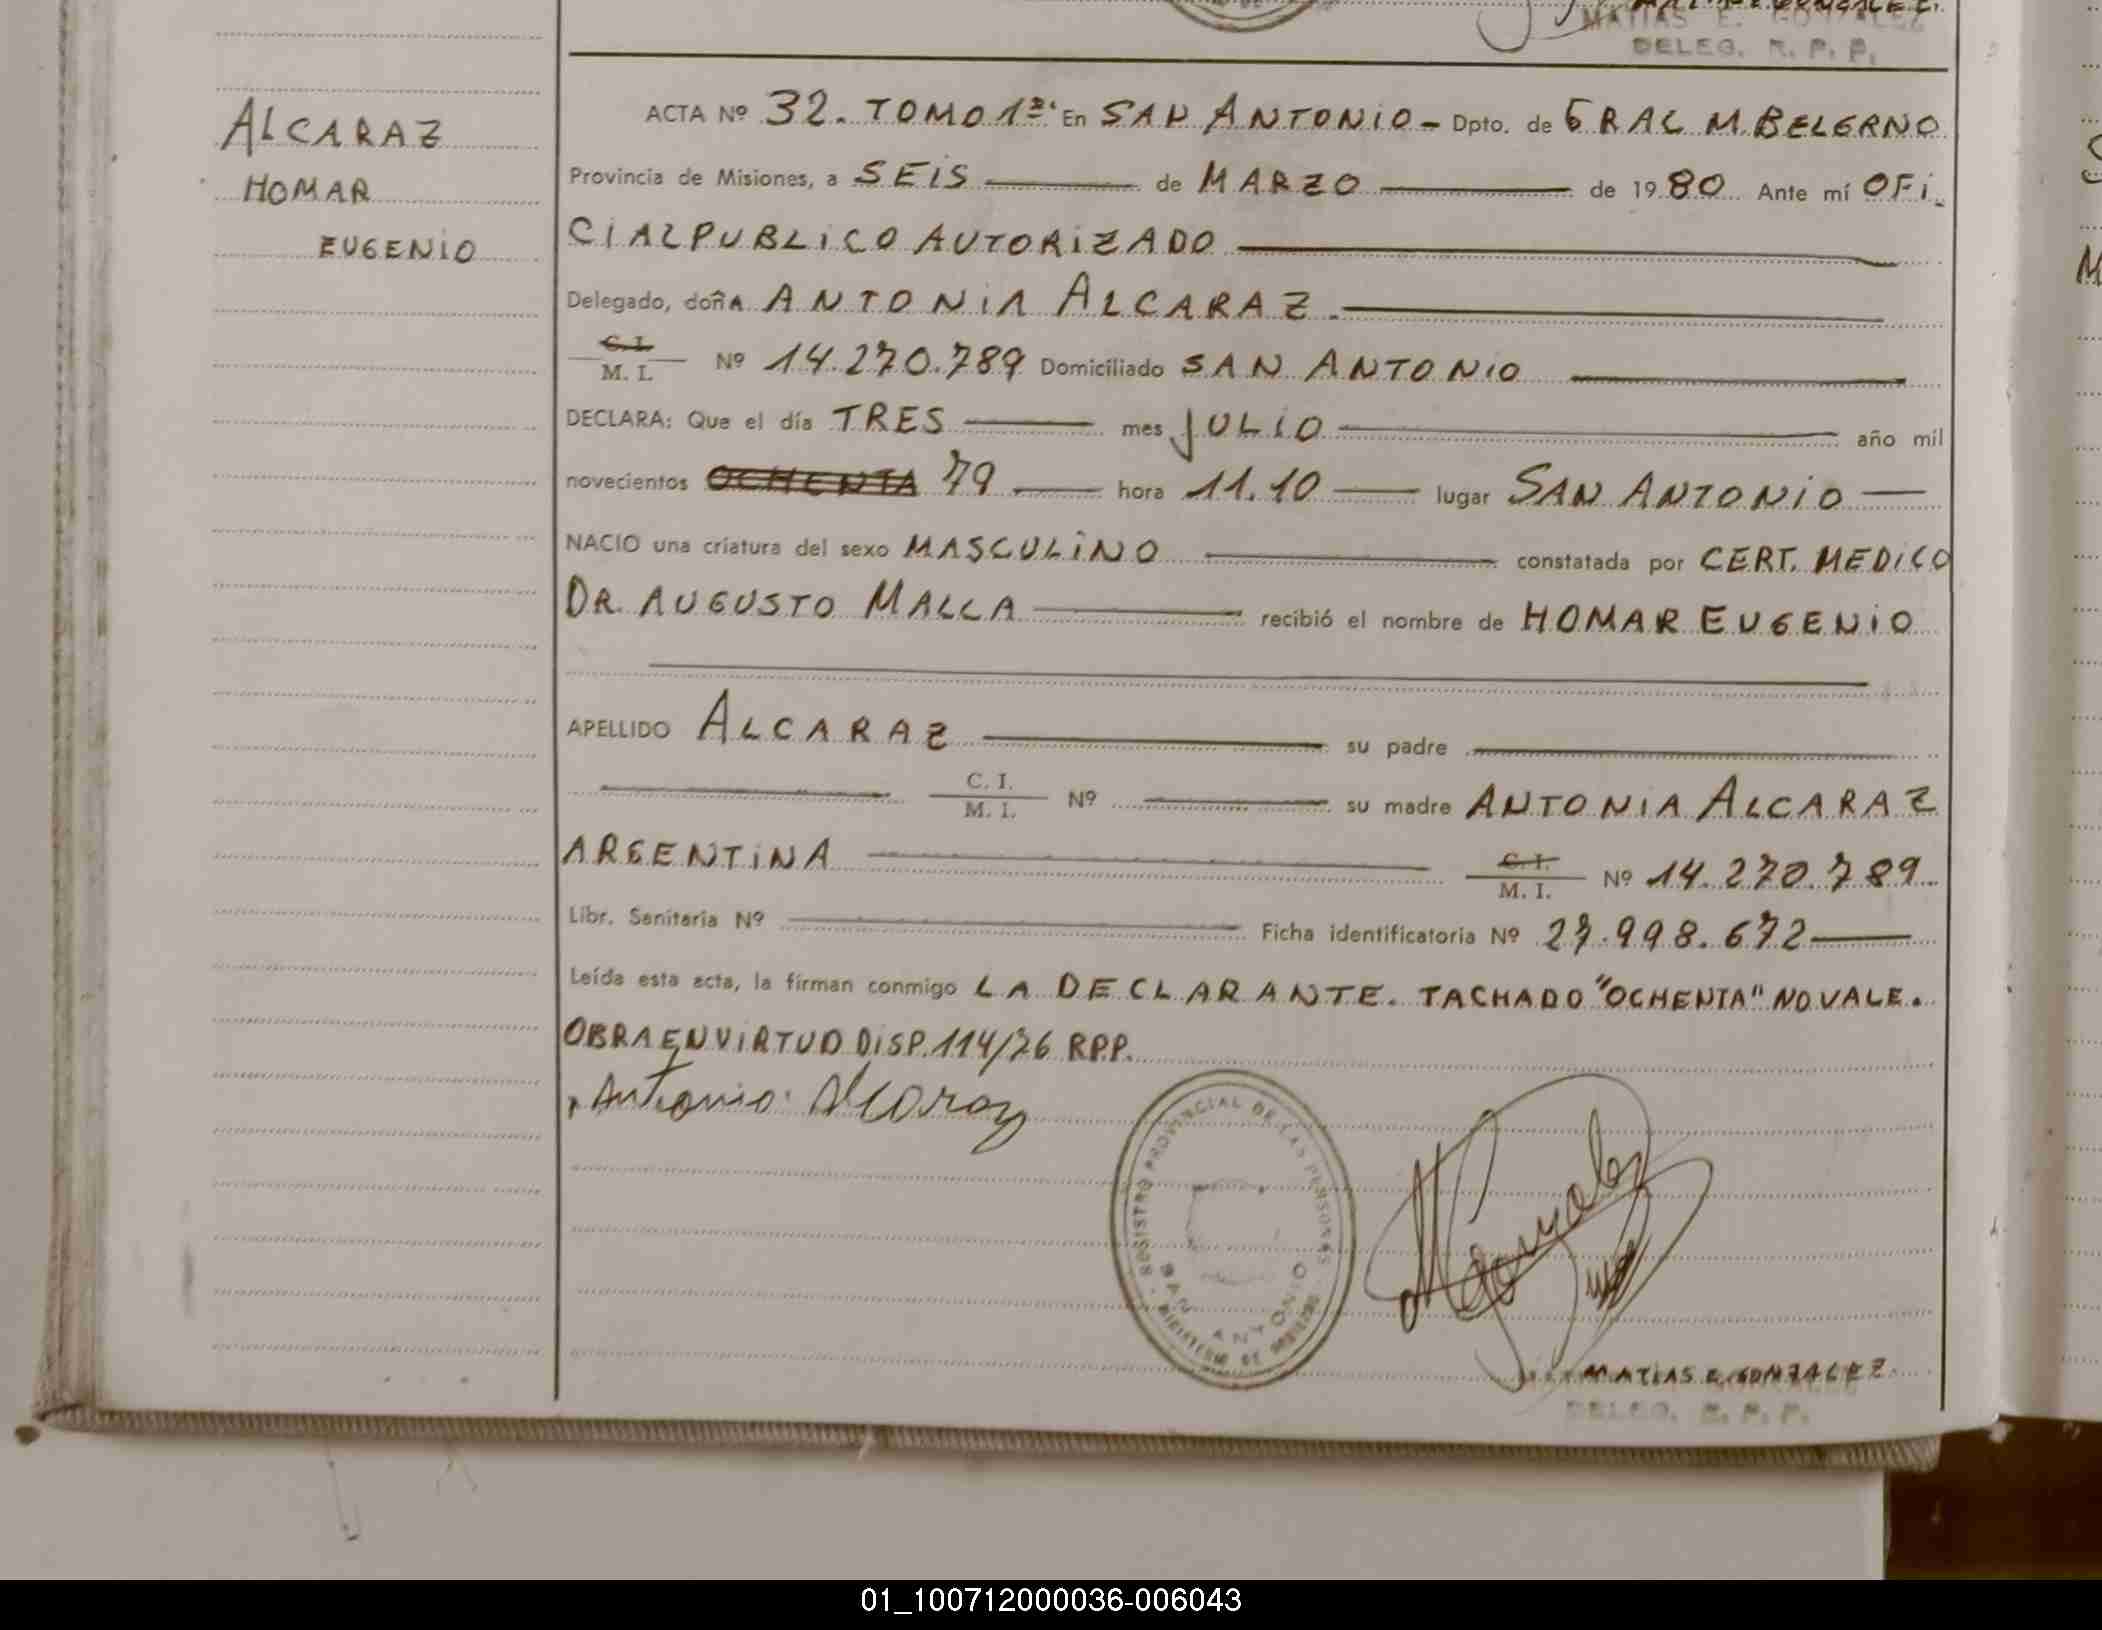 MATIAS E. GONZALEZ
DELEG. R. P. P.
ALCARAZ
HOMAR
EUGENIO
ACTA Nº 32. TOMO 1º En SAN ANTONIO - Dpto. de GRAL M. BELGRNO
Provincia de Misiones, a SEIS de MARZO de 1980 Ante mí OFI
CIAL PUBLICO AUTORIZADO
Delegado, doñA ANTONIA ALCARAZ.
C. I.
M. I. Nº 14.270.789 Domiciliado SAN ANTONIO
DECLARA: Que el día TRES mes JULIO año mil
novecientos OCHENTA 79 hora 11.10 lugar SAN ANTONIO
NACIO una criatura del sexo MASCULINO constatada por CERT. MEDICO
DR. AUGUSTO MALLA recibió el nombre de HOMAR EUGENIO
APELLIDO ALCARAZ su padre
C. I.
M. I. Nº su madre ANTONIA ALCARAZ
ARGENTINA C. I.
M. I. Nº 14.270.789
Libr. Sanitaria Nº Ficha identificatoria Nº 27.998.672
Leída esta acta, la firman conmigo LA DECLARANTE. TACHADO "OCHENTA" NO VALE.
OBRA EN VIRTUD DISP. 114/76 RPP.
Antonia Alcaraz
REGISTRO PROVINCIAL DE LAS PERSONAS
SAN ANTONIO
MINISTERIO DE GOBIERNO
MATIAS E. GONZALEZ
DELEG. R. P. P.
01_100712000036-006043